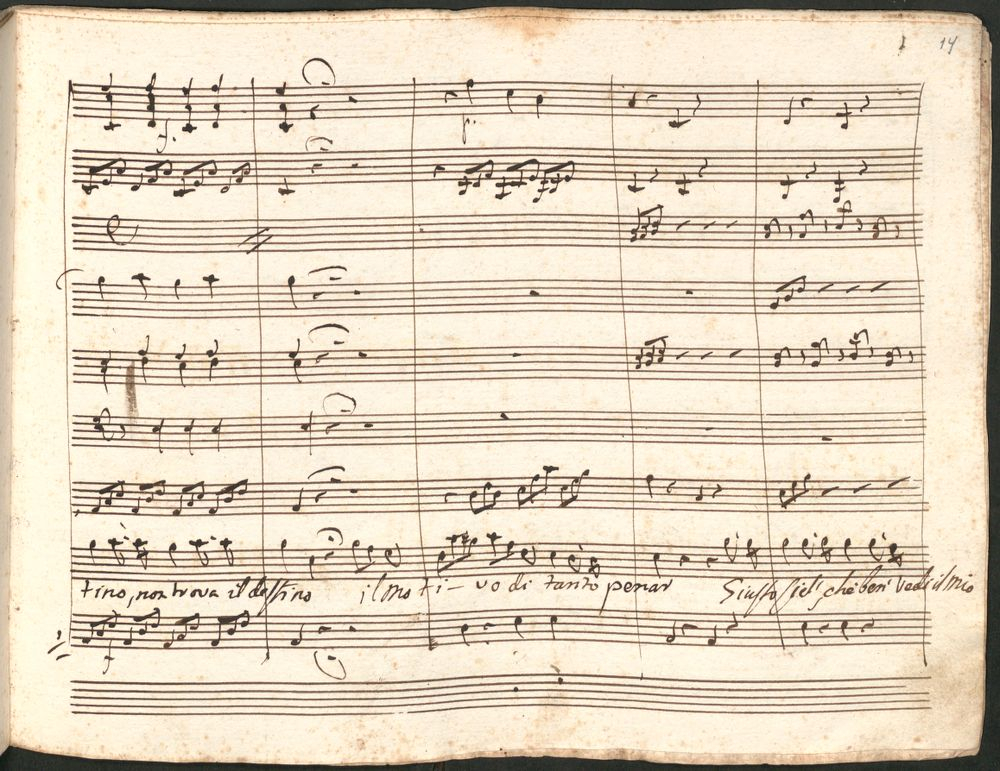 14
f.
p.
tino, non trova il destino il mo ti - vo di tanto penar Giusto Ciel che ben vedi il mio
f